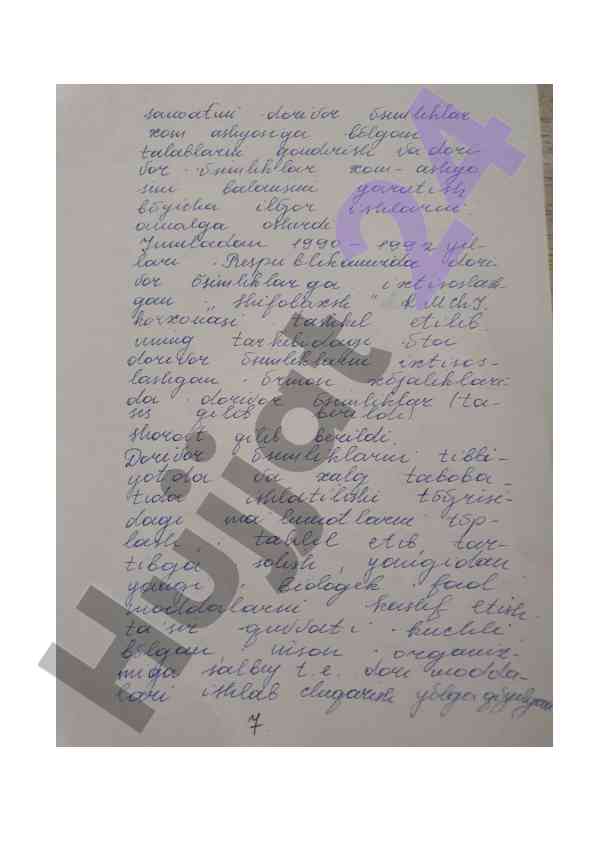 sanoatini dorivor ösimliklar
xom ashyosiga bölgan
talablarni qondirish va dori-
vor ösimliklar xom-ashyo
sini balansini yaratish
böyicha ilgor ishlarni
amalga oshirdi
Jumladan 1990-1992 yil-
lari Respublikamizda dori-
vor ösimliklarga ixtisoslash-
gan "Shifobaxsh"
korxonasi tashkil etilib
uning tarkibidagi
dorivor ösimliklarni ixtisos-
lashgan örmon xöjaliklari-
da dorivor ösimliklar (ta-
sis qilib berildi)
sharoit qilib berildi.
Dorivor ösimliklarni tibbi-
yotda va xalq taboba-
tida ishlatilishi tögrisi-
dagi ma'lumotlarni töp-
lash, tahlil etib, tar-
tibga solish, yangidan
yangi biologik faol
moddalarni kashf etish
ta'sir quvvati kuchli
bölgan, inson organiz-
miga salbiy t.e. dori modda-
lari ishlab chiqarish yölga qöyilgan
7
Hujjat 24